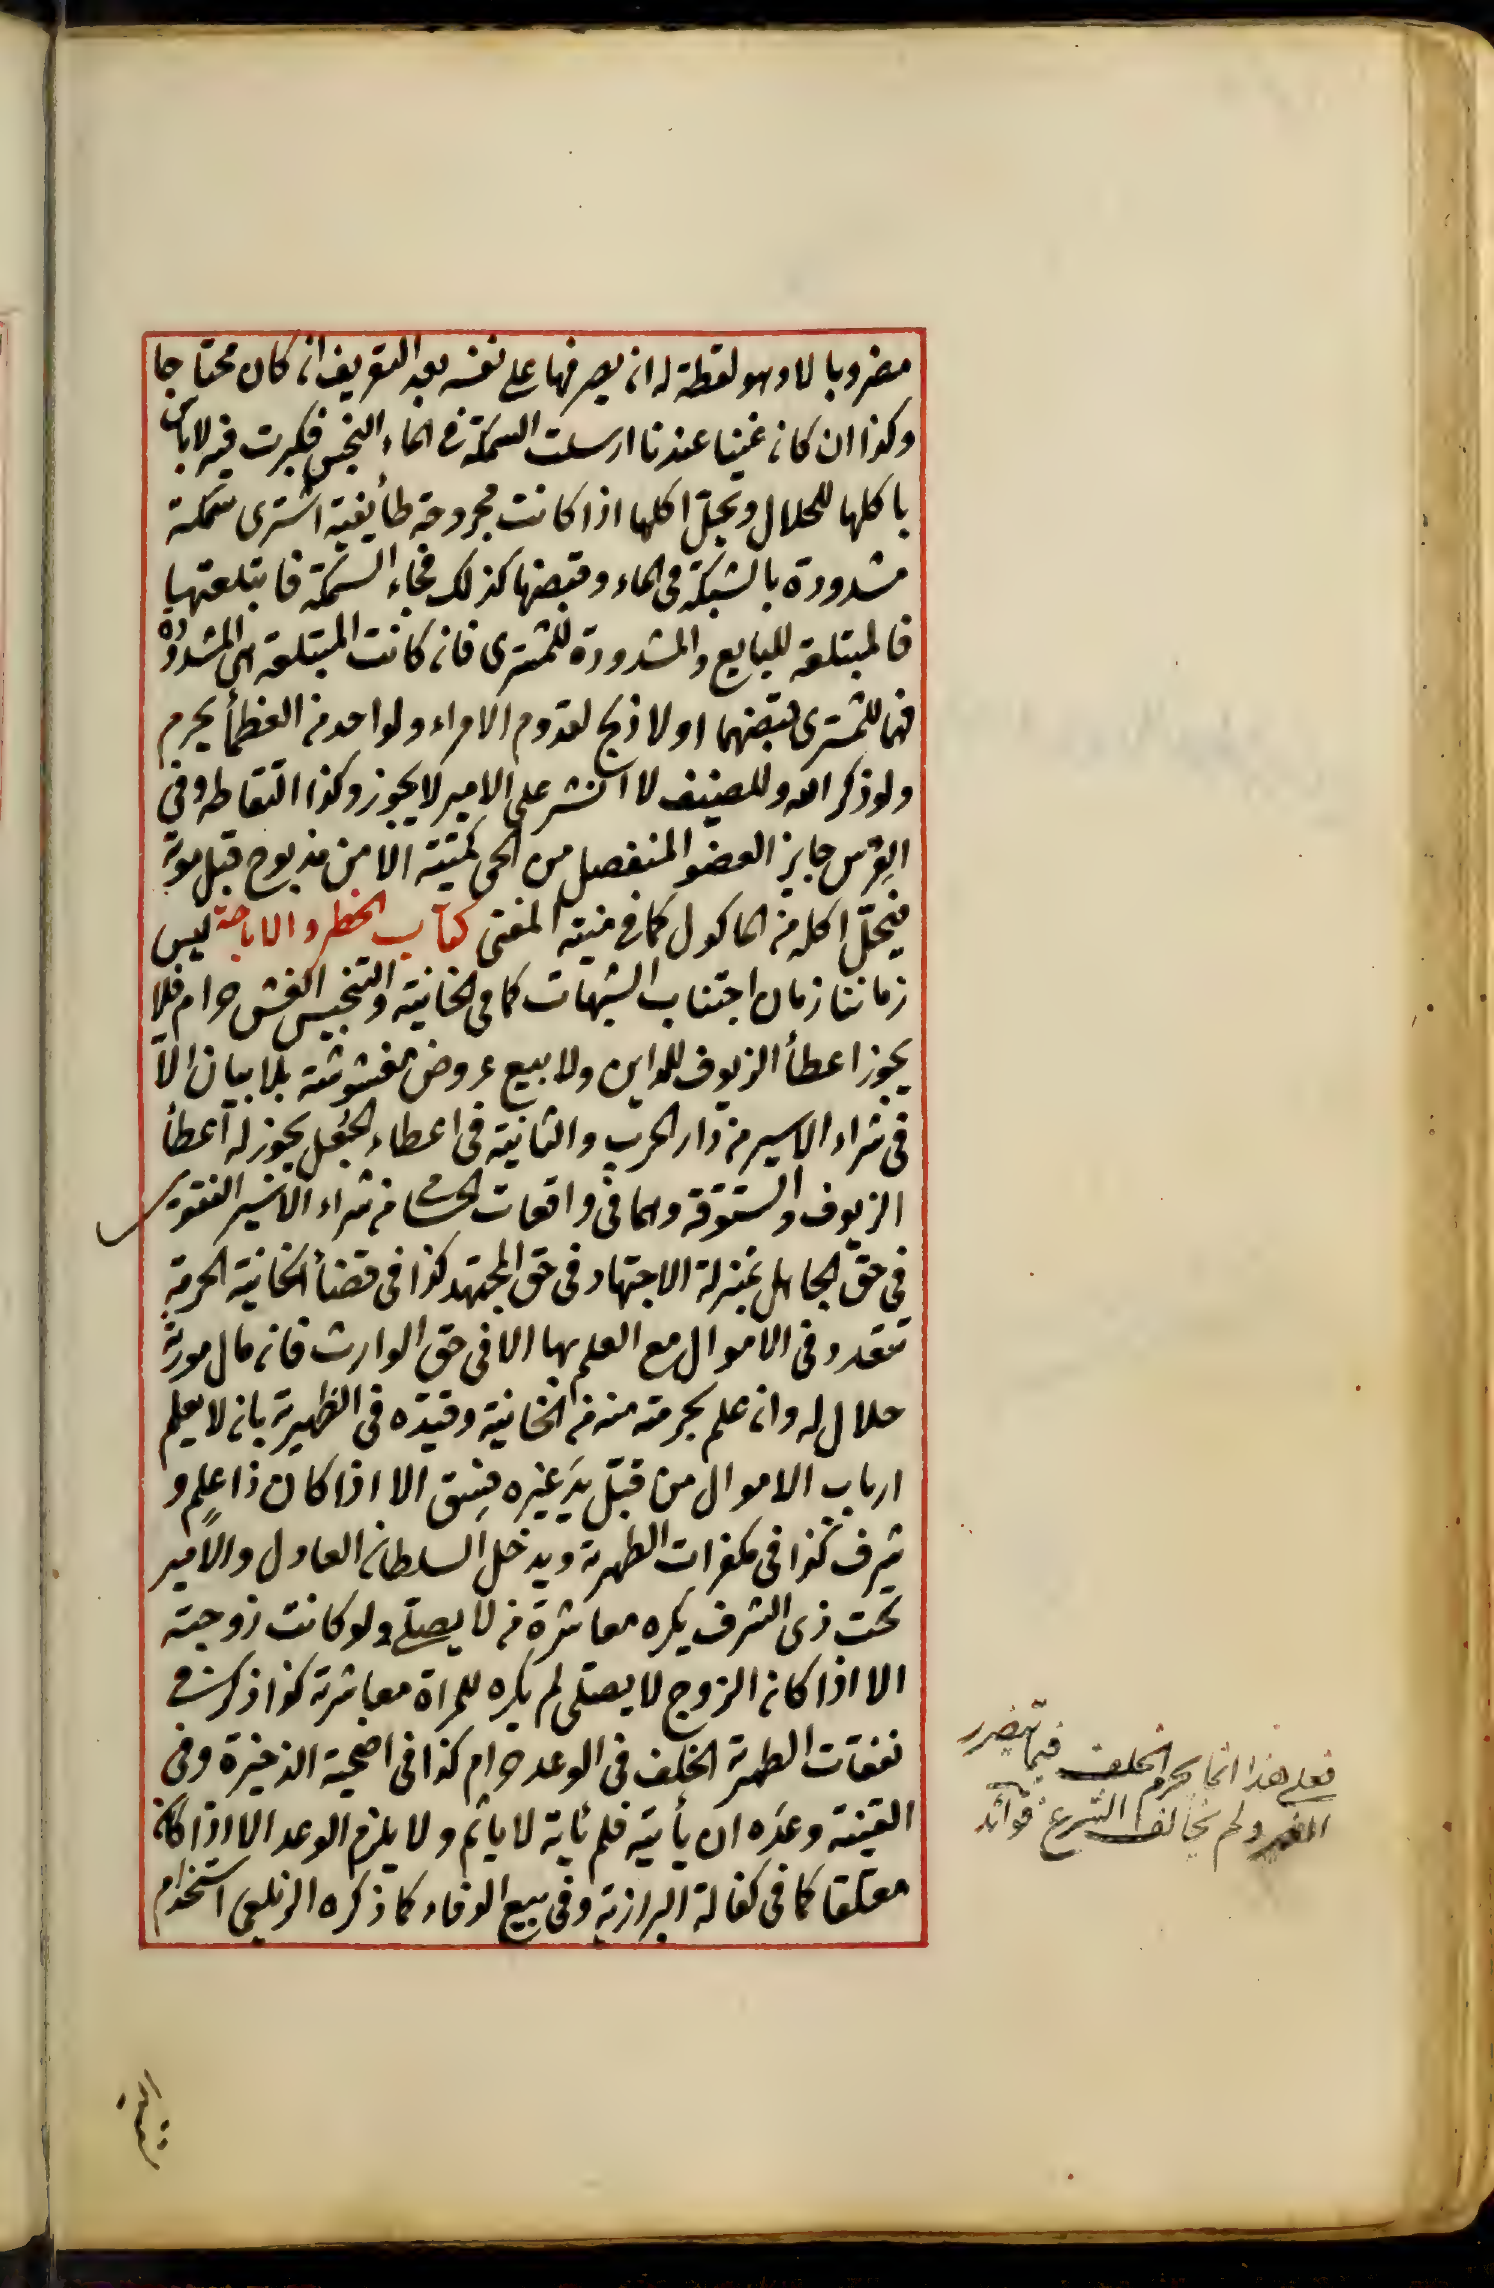 مضروبا لا وهو لقطة له ان يصرفها على نفسه بعد التعريف ان كان محتاجا
وكذا ان كان غنيا عندنا ارسلت السمكة في الماء النجس فكبرت فيه لاباس
باكلها للحلال ويحل اكلها اذا كانت مجروحة طأيفية اشترى سمكة
مشدودة بالشبكة في الماء وقبضها كذلك فجاء السمكة فابتلعتها
فالمبتلعة للبايع والمشدودة للمشترى فان كانت المبتلعة هي المشدودة
فهما للمشترى قبضهما اولا ذبح لقدوم الامراء ولواحد من العظمأ يحرم
ولو ذكر الله وللضيف لا النثر على الامير لا يجوز وكذا التقاطه وفي
العرس جايز العضو المنفصل من الحي كميتة الا من مذبوح قبل موته
فيحل اكله من الماكول كما في منية المفتى كتاب الحظر والاباحة ليس
زماننا زمان اجتناب الشبهات كما في الخانية والتنجيس الغش حرام فلا
يجوز اعطأ الزيوف للداين ولا بيع عروض مغشوشة بلا بيان الا
في شراء الاسير من دار الحرب والثانية في اعطاء الجعل يجوز له اعطأ
الزيوف والستوقة وهما في واقعات الحسامي من شراء الاسير الفتوى
في حق الجاهل بمنزلة الاجتهاد في حق المجتهد كذا في قضأ الخانية الحرمة
تتعدد في الاموال مع العلم بها الا في حق الوارث فان مال مورثه
حلال له وان علم بحرمته منه من الخانية وقيده في الظهيرية بان لا يعلم
ارباب الاموال من قبل يد غيره فسق الا اذا كان ذا علم و
شرف كذا في مكفرات الظهيرية ويدخل السلطان العادل والامير
تحت ذى الشرف يكره معاشرة من لا يصلى ولو كانت زوجته
الا اذا كان الزوج لا يصلى لم يكره للمراة معاشرته كذا ذكر في
نفقات الظهيرية الخلف في الوعد حرام كذا في اضحية الذخيرة وفي
القنية وعده ان يأتيه فلم يأته لا يأثم ولا يلزم الوعد الا اذا كان
معلقا كما في كفالة البزازية وفي بيع الوفاء كما ذكره الزيلعي استخدام
فعلى هذا انما يحرم الخلف فيما يتضرر
الغير ولم يخالف الشرع فوائد